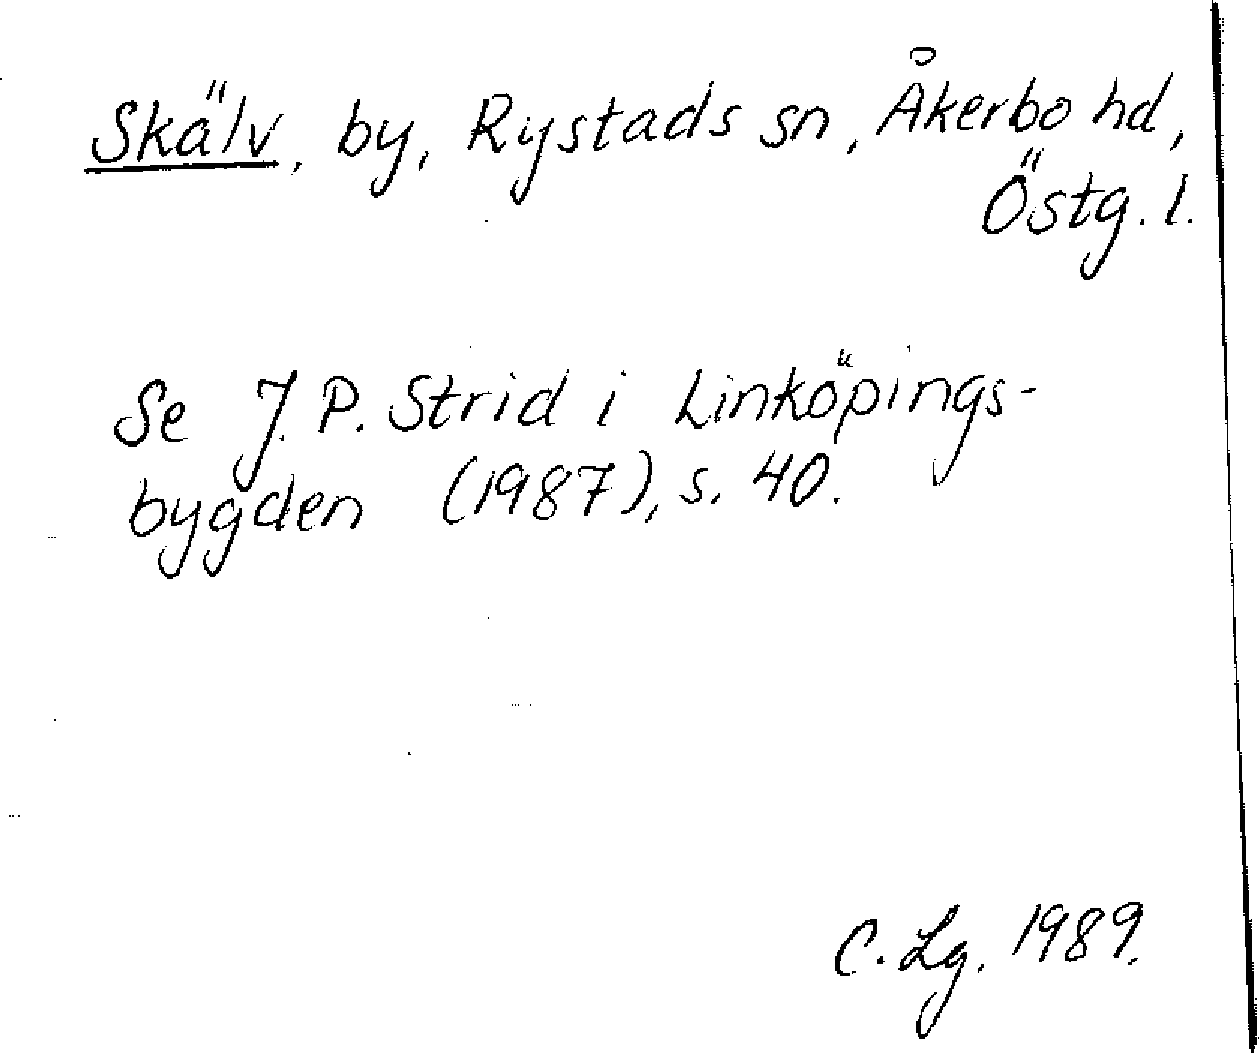 Skälv, by, Rystads sn, Åkerbo hd,
Östg. l.
Se J. P. Strid i Linköpings-
bygden (1987), s. 40.
C. Lg. 1989.